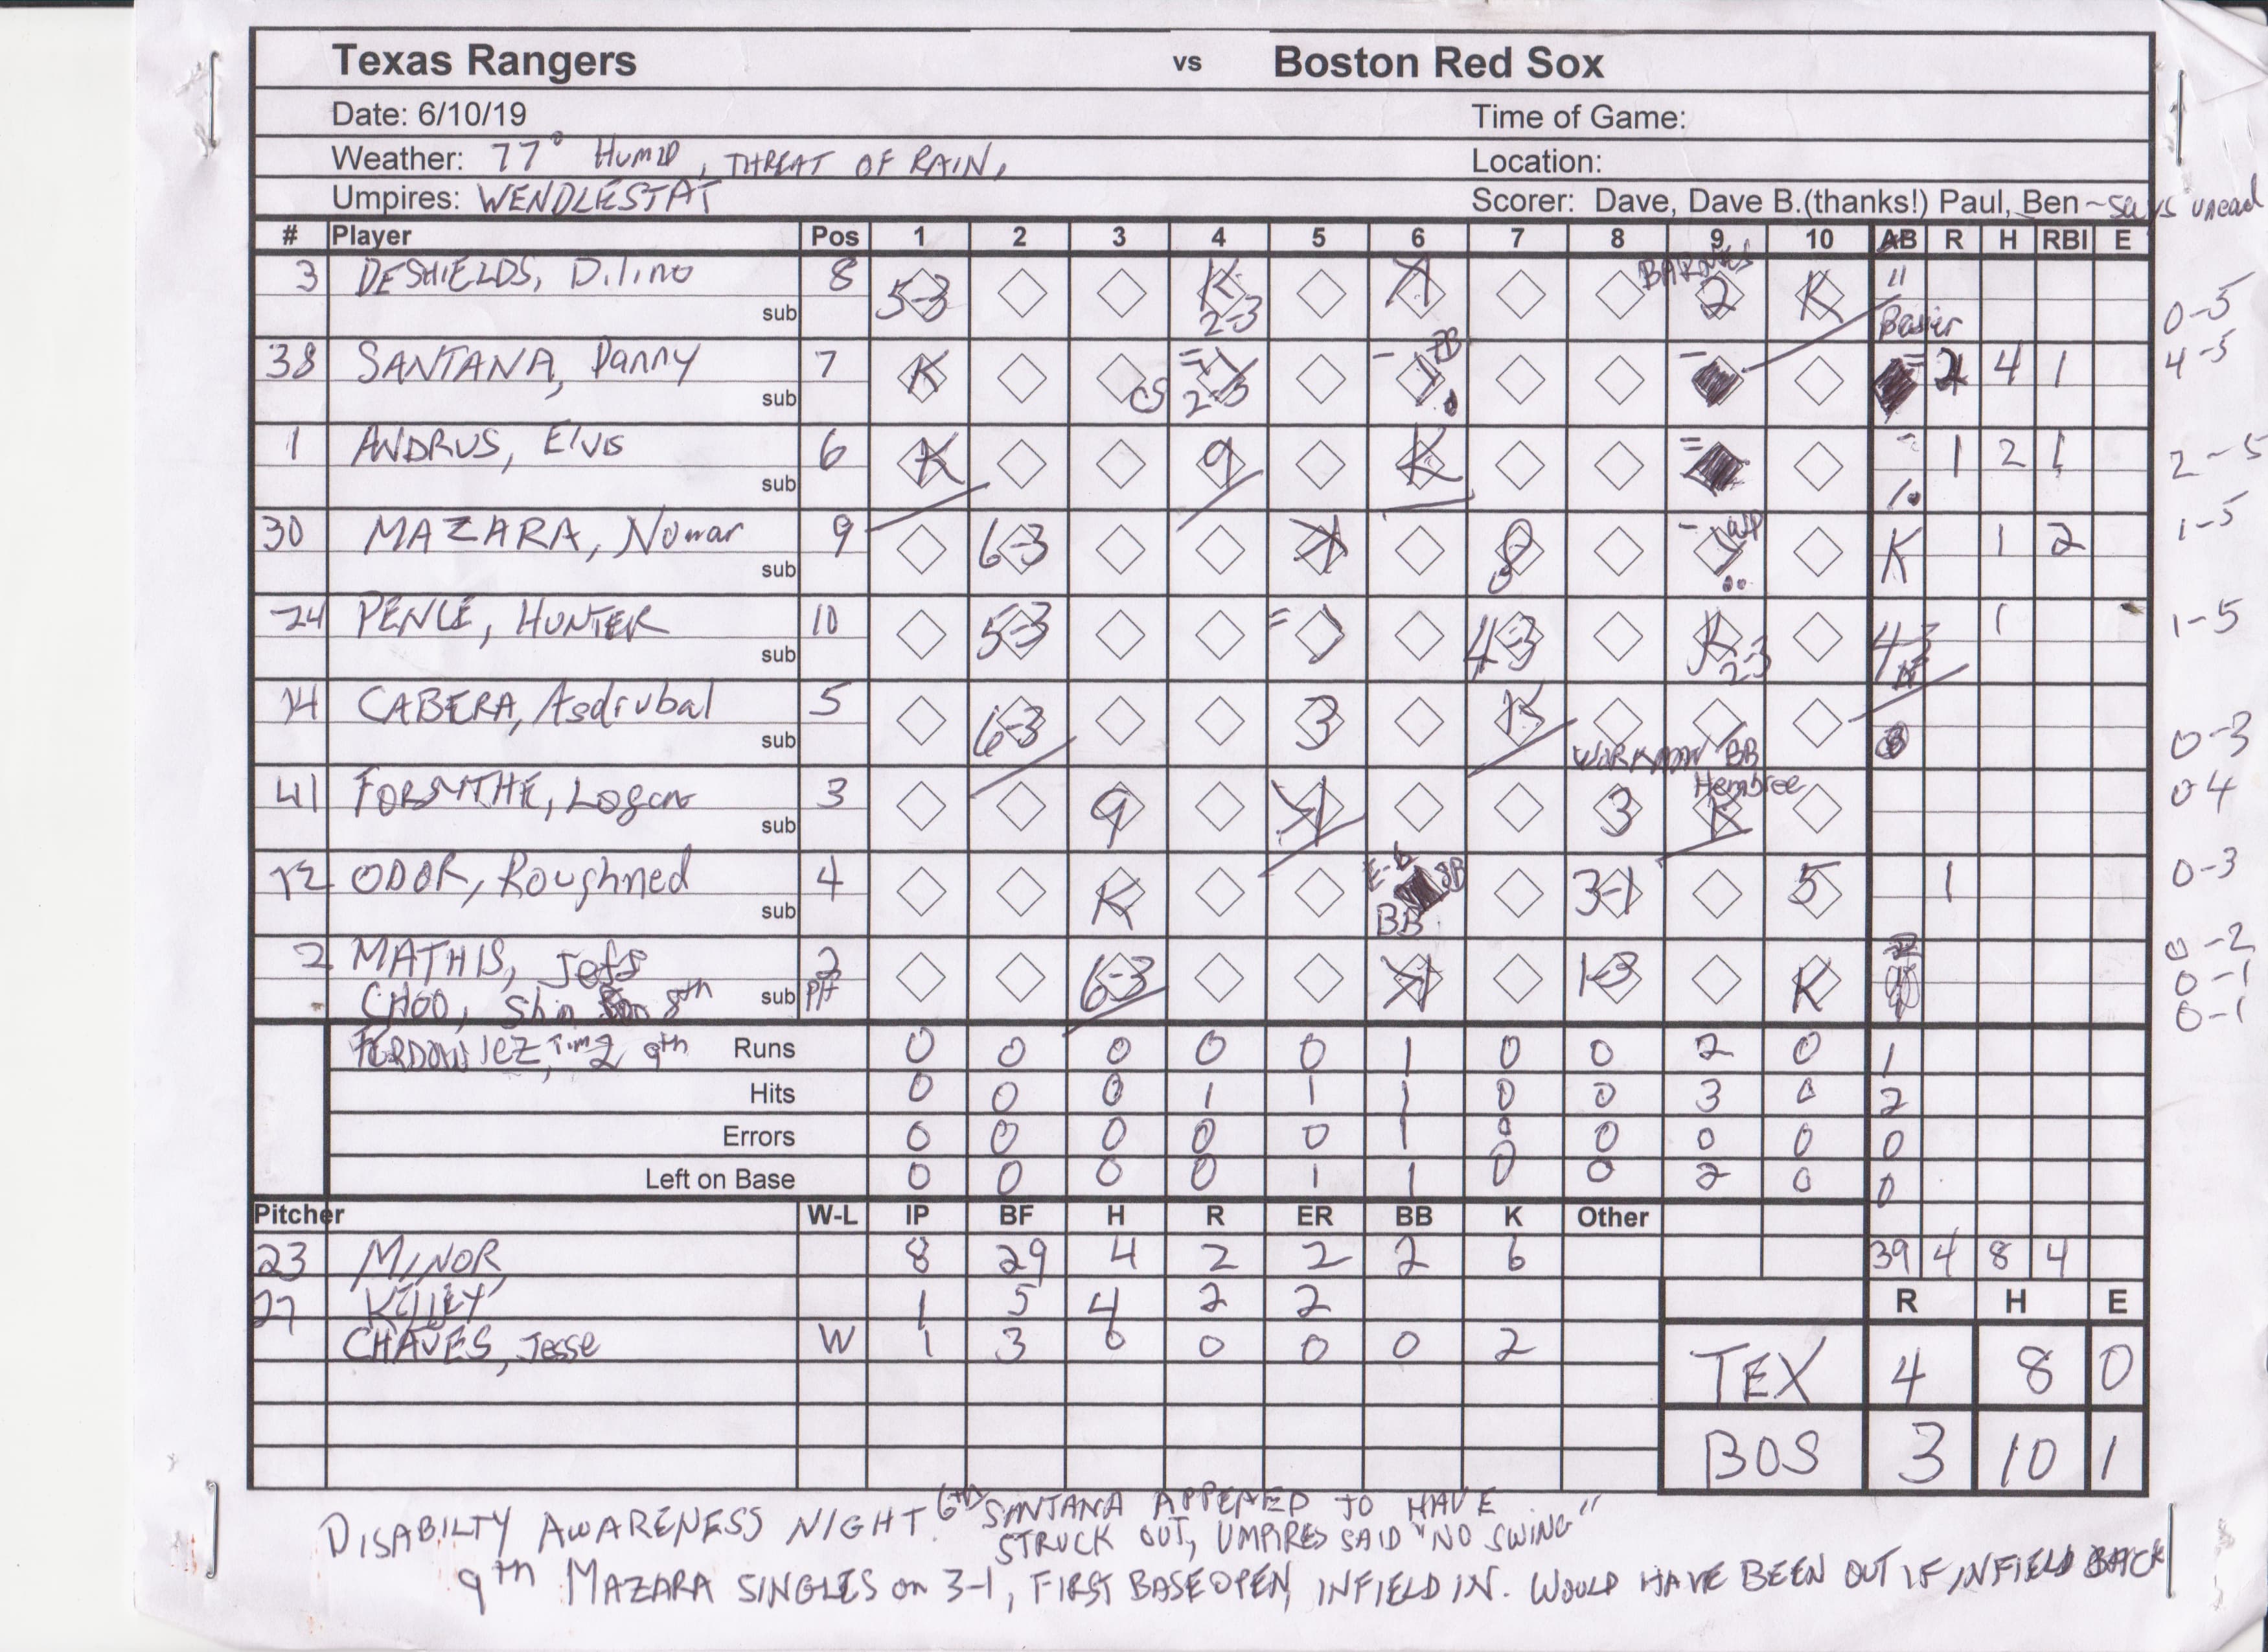 Texas Rangers vs Boston Red Sox
Date: 6/10/19 Time of Game:
Weather: 77° HUMID, THREAT OF RAIN, Location:
Umpires: WENDLESTAT Scorer: Dave, Dave B.(thanks!) Paul, Ben ~ says
# Player Pos 1 2 3 4 5 6 7 8 9 10 AB R H RBI E
BARNES
3 DESHIELDS, D.lino 8 5-3 K 2-3 K 2 K 11
sub 0-5
38 SANTANA, Danny 7 K CS 2-3 2 4 1 4-5
sub
1 ANDRUS, Elvis 6 K 9 K 1 2 1 2-5
sub
30 MAZARA, Nomar 9 6-3 K 8 K 1 2 1-5
sub
24 PENCE, HUNTER 10 5-3 4-3 K 2-3 4-3 1 1-5
sub
14 CABERA, Asdrubal 5 6-3 3 K 8 0-3
sub WORKMAN BB
Hembree
41 FORSYTHE, Logan 3 9 K 3 K 04
sub
12 ODOR, Roughned 4 K E-6 SB BB 3-1 5 1 0-3
sub
2 MATHIS, Jeff 2 6-3 K 1-3 K 0-2
CHOO, Shin 8th sub PH 0-1
0-1
9th Runs 0 0 0 0 0 1 0 0 2 0 1
Hits 0 0 0 1 1 1 0 0 3 0 2
Errors 0 0 0 0 0 1 0 0 0 0 0
Left on Base 0 0 0 0 1 1 0 0 2 0 0
Pitcher W-L IP BF H R ER BB K Other
23 MINOR 8 29 4 2 2 2 6 39 4 8 4
27 KELLEY 1 5 4 2 2
R H E
CHAVES, Jesse W 1 3 0 0 0 0 2
TEX 4 8 0
BOS 3 10 1
DISABILTY AWARENESS NIGHT. 6TH SANTANA APPEARED TO HAVE
STRUCK OUT, UMPIRES SAID "NO SWING"
9th MAZARA SINGLES on 3-1, FIRST BASE OPEN, INFIELD IN. WOULD HAVE BEEN OUT IF INFIELD BACK